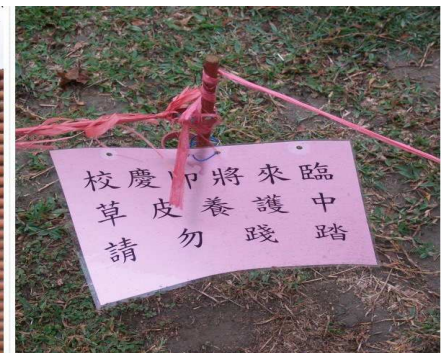 校慶即將來臨
草皮養護中
請勿踐踏